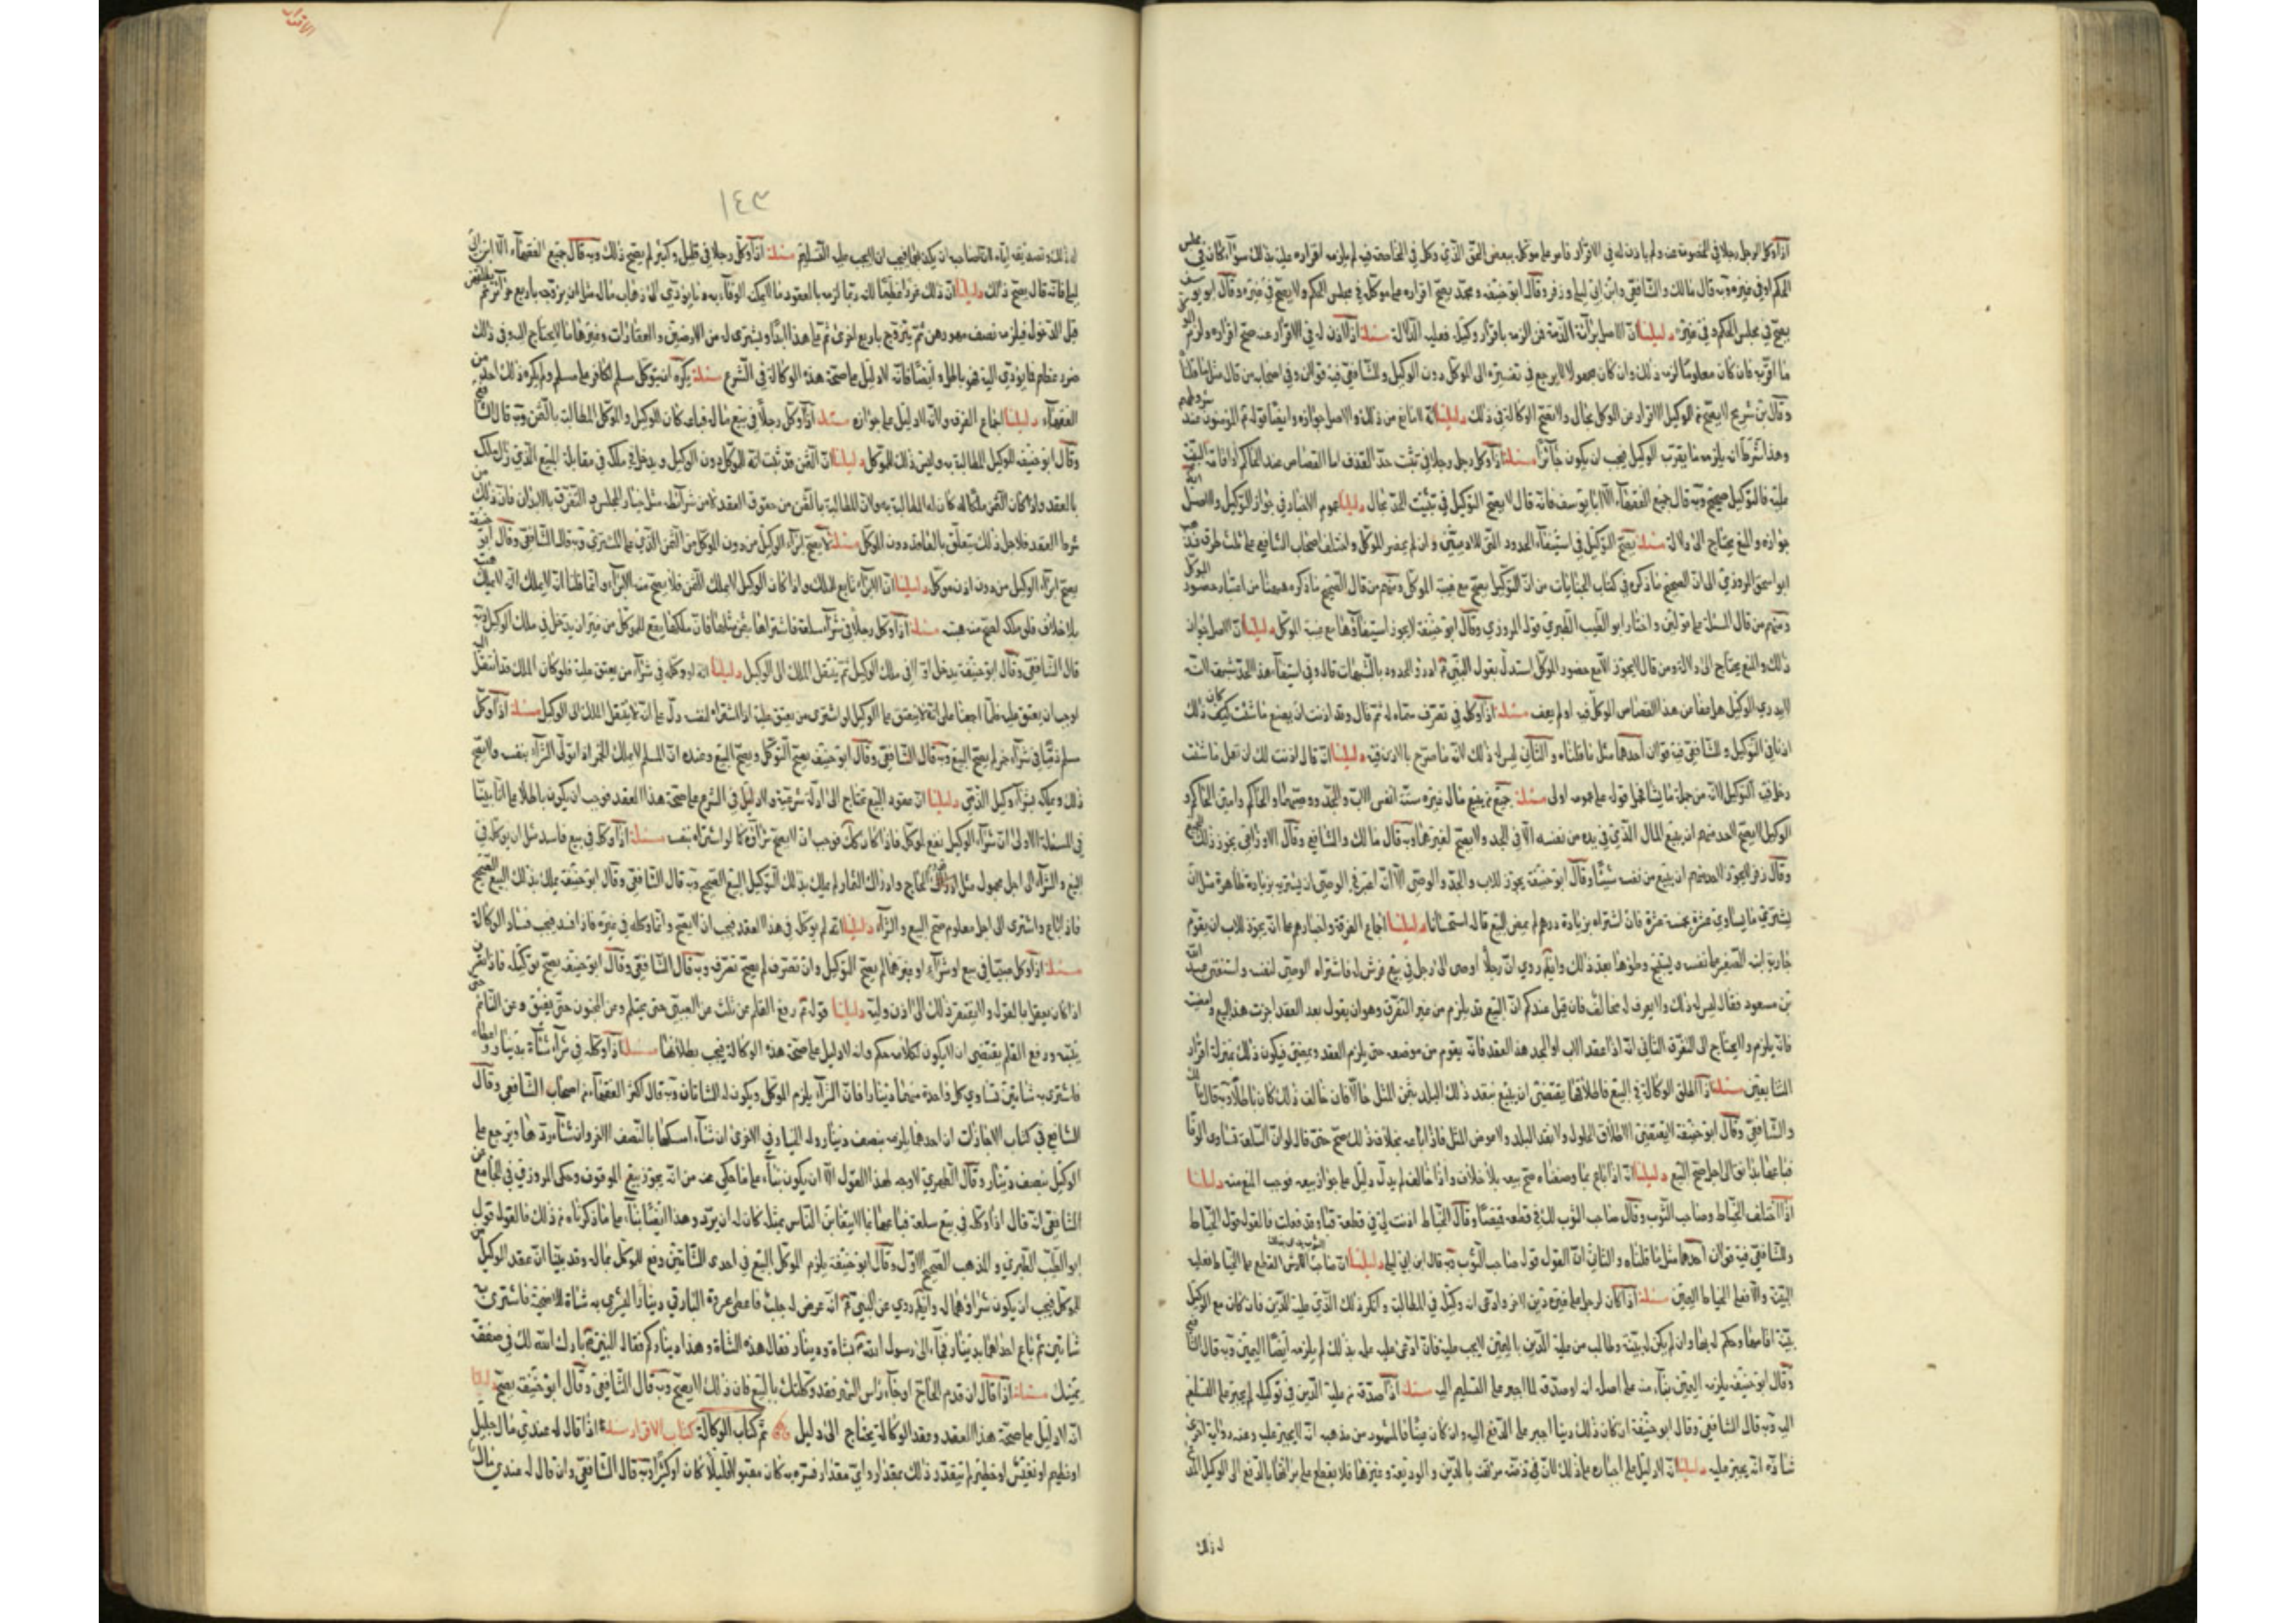 اذا وكل الرجل رجلا في الخصومة عنه ولم ياذن له في الاقرار فاقر على موكله ببعض الحق الذي وكل في المخاصمة فيه لم يلزمه اقراره عليه بذلك سواء كان في مجلس
الحكم او في غيره وبه قال مالك والشافعي وابن ابي ليلى وزفر وقال ابو حنيفة ومحمد يصح اقراره على موكله في مجلس الحكم ولا يصح في غيره وقال ابو يوسف
يصح في مجلس الحكم وفي غيره دليلنا ان الاصل براءة الذمة فمن الزمه باقرار وكيله فعليه الدلالة مسئلة اذا اذن له في الاقرار عنه صح اقراره ولزم الموكل
ما اقر به فان كان معلوما لزمه ذلك وان كان مجهولا لا يرجع في تفسيره الى الموكل دون الوكيل وللشافعي فيه قولان وفي اصحابه من قال مثل ما قلناه
وقال بن سريج لا يصح من الوكيل الاقرار عن الموكل بحال ولا يصح الوكالة في ذلك دليلنا انه لا مانع من ذلك والاصل جوازه وايضا قوله المؤمنون عند شروطهم
وهذا شرط ان يلزمه ما يقر به الوكيل فيجب ان يكون جائزا مسئلة اذا وكل رجل رجلا في تثبت حد القذف اما القصاص عند الحاكم اذا قامت البينة
عليه فالتوكيل صحيح وبه قال جميع الفقهاء الا ابا يوسف فانه قال لا يصح التوكيل في تثبيت الحد بحال دليلنا عموم الاخبار في جواز التوكيل والاصل
جوازه والمنع يحتاج الى دلالة مسئلة يصح التوكيل في استيفاء الحدود التي للادميين وان لم يحضر الموكل واختلف اصحاب الشافعي على ثلث طرق فذهب
ابو اسحق المروزي الى ان الصحيح ما ذكره في كتاب الجنايات من ان التوكيل يصح مع غيبة الموكل ومنهم من قال الصحيح ما ذكره هيهنا من اعتبار حضور الموكل
ومنهم من قال المسئلة على قولين واختار ابو الطيب الطبري قول المروزي وقال ابو حنيفة لا يجوز استيفاؤها مع غيبة الموكل دليلنا ان الاصل جواز
ذلك والمنع يحتاج الى دلالة ومن قال لا يجوز الا مع حضور الموكل استدل بقول النبي ادرؤ الحدود بالشبهات قال وفي استيفاء هذا الحد شبهة لانه
لا يدري الوكيل هل عفا عن هذا القصاص الموكل فيه او لم يعف مسئلة اذا وكله في تصرف سماه له ثم قال وقد اذنت ان يصنع ما شئت كان ذلك
اذنا في التوكيل وللشافعي فيه قولان احدهما مثل ما قلناه والثاني ليس له ذلك لانه ما صرح بالاذن فيه دليلنا انه قال اذنت لك ان تعمل ما شئت
دخل فيه التوكيل لانه من جملة ما يشاء فحمل قوله على عمومه اولى مسئلة جميع من يبيع مال غيره ستة انفس الاب والجد ووصيهما والحاكم وامين الحاكم و
الوكيل لا يصح لاحد منهم ان يبيع المال الذي في يده من نفسه الا في الجد ولا يصح لغيرهما وبه قال مالك والشافعي وقال الاوزاعي يجوز ذلك للجميع
وقال زفر لا يجوز لاحد منهم ان يبيع من نفسه شيئا وقال ابو حنيفة يجوز للاب والجد والوصي الا انه اعتبر في الوصي ان يشتريه بزيادة ظاهرة مثل ان
يشتري ما يساوي عشرة بخمسة عشرة فان اشتراه بزيادة درهم لم يمض البيع قاله استحسانا دليلنا اجماع الفرقة واخبارهم على انه يجوز للاب ان يقوم
جارية ابنه الصغير على نفسه ويستبيح وطؤها بعد ذلك وايضا روي ان رجلا اوصى الى رجل في بيع فرس له فاشتراه الوصي لنفسه واستفتى عبد الله
بن مسعود فقال ليس له ذلك ولا يعرف له مخالف فان قيل عندكم ان البيع قد يلزم من غير التفرق وهو ان يقول بعد العقد اجزت هذا البيع وامضيت
فانه يلزم ولا يحتاج الى التفرق الثاني انه اذا عقد الاب او الجد هذا العقد فانه يقوم من موضعه حتى يلزم العقد ويمضي فيكون ذلك بمنزلة افتراق
المتبايعين مسئلة اذا اطلق الوكالة في البيع فاطلاقها يقتضي ان يبيع بنقد ذلك البلد بثمن المثل حالا فان خالف ذلك كان باطلا وبه قال مالك
والشافعي وقال ابو حنيفة لا يقتضي الاطلاق الحلول ولا نقد البلد ولا عوض المثل فاذا باعه بخلاف ذلك صح حتى قال لو ان السلعة تساوي الوفا
فباعها بدانق الى اجل صح البيع دليلنا انه اذا باع بما وصفناه صح بيعه بلا خلاف واذا خالف لم يدل دليل على جواز بيعه فوجب المنع منه دليلنا
اذا اختلف الخياط وصاحب الثوب وقال صاحب الثوب اذنت لك في قطعه قميصا وقال الخياط اذنت لي في قطعه قباء وقد فعلت فالقول قول الخياط
وللشافعي فيه قولان احدهما مثل ما قلناه والثاني ان القول قول صاحب الثوب وبه قال ابن ابي ليلى دليلنا ان صاحب الثوب يدعي على الخياط فعليه
البينة والا فعلى الخياط اليمين مسئلة اذا كان لرجل على غيره دين فجاء اخر وادعى انه وكيله في المطالبة وانكر ذلك الذي عليه الدين فان كان مع الوكيل
بينة اقامها وحكم له بها وان لم يكن له بينة وطالب من عليه الدين باليمين لا يجب عليه فان ادعى عليه علمه بذلك لم يلزمه ايضا اليمين وبه قال الشافعي
وقال ابو حنيفة يلزمه اليمين بناء منه على اصله انه لو صدقه لما اجبر على التسليم اليه مسئلة اذا صدقه من عليه الدين في توكيله لم يجبر على التسليم
اليه وبه قال الشافعي وقال ابو حنيفة ان كان ذلك دينا اجبر على الدفع اليه وان كان عينا فالمشهور من مذهبه انه لا يجبر عليه وعنه رواية اخرى
شاذة انه يجبر عليه دليلنا انه لا دليل على اجباره على ذلك لان في ذمته بالدين والوديعة وغيرها فلا يقطع على براءتها بالدفع الى الوكيل
له ذلك
١٤٣
له ذلك وتصديقه اياه فيجب ان لا يجب عليه التسليم مسئلة اذا وكل رجلا في قليل وكثير لم يصح ذلك وبه قال جميع الفقهاء الا ابن ابي
ليلى فانه قال يصح ذلك دليلنا ان ذلك غررا عظيما لانه ربما لزمه بالعقود ما لا يمكنه الوفاء به وما يؤدي الى ذهاب ماله مثل ان يزوجه باربع حرائر ثم يطلقهن
قبل الدخول فيلزمه نصف مهورهن ثم يتزوج باربع اخرى ثم على هذا ابدا ويشتري له من الارضين والعقارات وغيرها ما لا يحتاج اليه وفي ذلك
ضرر عظيم فما يؤدي اليه فهو باطل وايضا فانه لا دليل على صحة هذه الوكالة في الشرع مسئلة يكره ان يتوكل مسلم لكافر على مسلم ولم يكره ذلك احد من
الفقهاء دليلنا اجماع الفرقة ولانه لا دليل على جوازه مسئلة اذا وكل رجلا في بيع ماله فباعه كان للوكيل والموكل المطالبة بالثمن وبه قال الشافعي
وقال ابو حنيفة للوكيل المطالبة به وليس ذلك للموكل دليلنا ان الثمن قد ثبت انه للموكل دون الوكيل ويدخل في ملكه في مقابلة المبيع الذي زال ملكه
بالعقد واذا كان الثمن ملكا له كان له المطالبة به ولان المطالبة بالثمن من حقوق العقد لا من شرائطه مثل خيار المجلس والتفرق بالابدان فان ذلك من
شرط العقد فلاجل ذلك يتعلق بالعاقد دون الموكل مسئلة لا يصح ابراء الوكيل من دون الموكل من الثمن الذي على المشتري وبه قال الشافعي وقال ابو حنيفة
يصح ابراء الوكيل من دون اذن موكله دليلنا ان الابراء تابع للملك واذا كان الوكيل لا يملك الثمن فلا يصح منه الابراء وانما قلنا انه لا يملك انه لا يملك هبته
بلا خلاف فلو ملكه لصح منه هبته مسئلة اذا وكل رجلا في شراء سلعة فاشتراها بثمن مثلها فان ملكها يقع للموكل من غير ان يدخل في ملك الوكيل وبه
قال الشافعي وقال ابو حنيفة يدخل اولا في ملك الوكيل ثم ينتقل الملك الى الوكيل دليلنا انه لو وكله في شراء من يعتق عليه فلو كان الملك قد انتقل اليه
لوجب ان يعتق عليه فلما اجمعنا على انه لا ينعتق على الوكيل لو اشترى من يعتق عليه اذا اشتراه لنفسه دل على انه لا ينتقل الملك الى الوكيل مسئلة اذا وكل
مسلم ذميا في شراء خمر لم يصح البيع وبه قال الشافعي وقال ابو حنيفة يصح التوكل ويصح البيع وعنده ان المسلم لا يملك الخمر اذا تولى الشراء بنفسه ولا يصح
ذلك ويملكه بشراء وكيله الذمي دليلنا ان عقود البيع تحتاج الى ادلة شرعية ولا دليل في الشرع على صحة هذا العقد فوجب ان يكون باطلا على انا بينا
في المسئلة الاولى ان شراء الوكيل يقع لموكله فاذا كان كك فوجب ان لا يصح شراؤه كما لو اشتراه بنفسه مسئلة اذا وكله في بيع فاسد مثل ان يوكله في
البيع والشراء الى اجل مجهول مثل قدوم الحاج وادراك الثمار لم يملك بذلك التوكيل البيع الصحيح وبه قال الشافعي وقال ابو حنيفة يملك بذلك البيع الصحيح
فاذا باع واشترى الى اجل معلوم صح البيع والشراء دليلنا انه لم يوكله في هذا العقد فيجب ان لا يصح وانما وكله في غيره فاذا فسد فيجب فساد الوكالة
مسئلة اذا وكل صبيا في بيع او شراء او غيرهما لم يصح التوكيل وان تصرف لم يصح تصرفه وبه قال الشافعي وقال ابو حنيفة يصح توكيله فاذا تصرف
اذا كان يعقل ما يقول ولا يفتقر ذلك الى اذن وليه دليلنا قوله رفع القلم عن ثلث عن الصبي حتى يحتلم وعن المجنون حتى يفيق وعن النائم حتى
ينتبه ورفع القلم يقتضي ان لا يكون لكلامه حكم ولانه لا دليل على صحة هذه الوكالة فيجب بطلانها مسئلة اذا وكله في شراء شاة بدينار واعطاه
فاشترى به شاتين تساوي كل واحدة منهما دينارا فان الشراء يلزم الموكل ويكون له الشاتان وبه قال اكثر الفقهاء من اصحاب الشافعي وقال
الشافعي في كتاب الاجارات ان احدهما يلزمه بنصف دينار وله الخيار في الاخرى ان شاء امسكها بالنصف الاخر وان شاء ردها ويرجع على
الوكيل بنصف دينار وقال الطبري لا وجه لهذا القول الا ان يكون بناء على ما حكى عنه من انه يجوز بيع الموقوف وحكى المروزي في الجامع عن
الشافعي انه قال اذا وكله في بيع سلعة فباعها بما لا يتغابن الناس بمثله كان له ان يرد وهذا ايضا بناء على ما ذكرناه من ذلك فالقول قول
ابو الطيب الطبري والمذهب الصحيح الاول وقال ابو حنيفة يلزم الموكل البيع في احدى الشاتين ودفع الموكل ماله وقد بينا ان عقد الوكيل
للموكل فيجب ان يكون شراؤهما له وايضا روي عن النبي انه عرض له جلب فاعطى عروة البارقي دينارا ليشتري به شاة للاضحية فاشترى به
شاتين ثم باع احداهما بدينار فجاء الى رسول الله بشاة ودينار فقال هذه الشاة وهذا ديناركم فقال النبي بارك الله لك في صفقة
يمينك مسئلة اذا قال ان قدم الحاج او جاء راس الشهر فقد وكلتك بالبيع فان ذلك لا يصح وبه قال الشافعي وقال ابو حنيفة يصح دليلنا
انه لا دليل على صحة هذا العقد وعقد الوكالة يحتاج الى دليل تم كتاب الوكالة كتاب الاقرار مسئلة اذا قال له عندي مال جليل
او عظيم او نفيس او خطير لم يتقدر ذلك بمقدار واي مقدار فسره به كان مقبولا قليلا كان او كثيرا وبه قال الشافعي وان قال له عندي مال